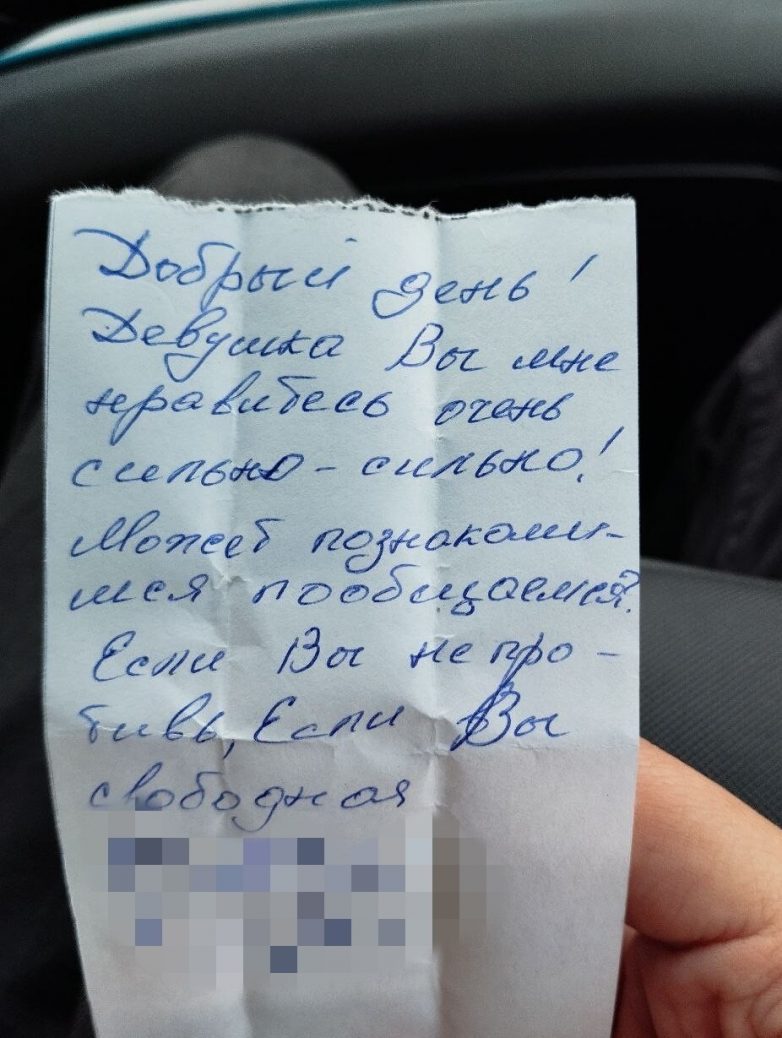 Добрый день!
Девушка Вы мне
нравитесь очень
сильно-сильно!
Может познакоми-
мся пообщаемся?
Если Вы не про-
тивь, Если Вы
свободная